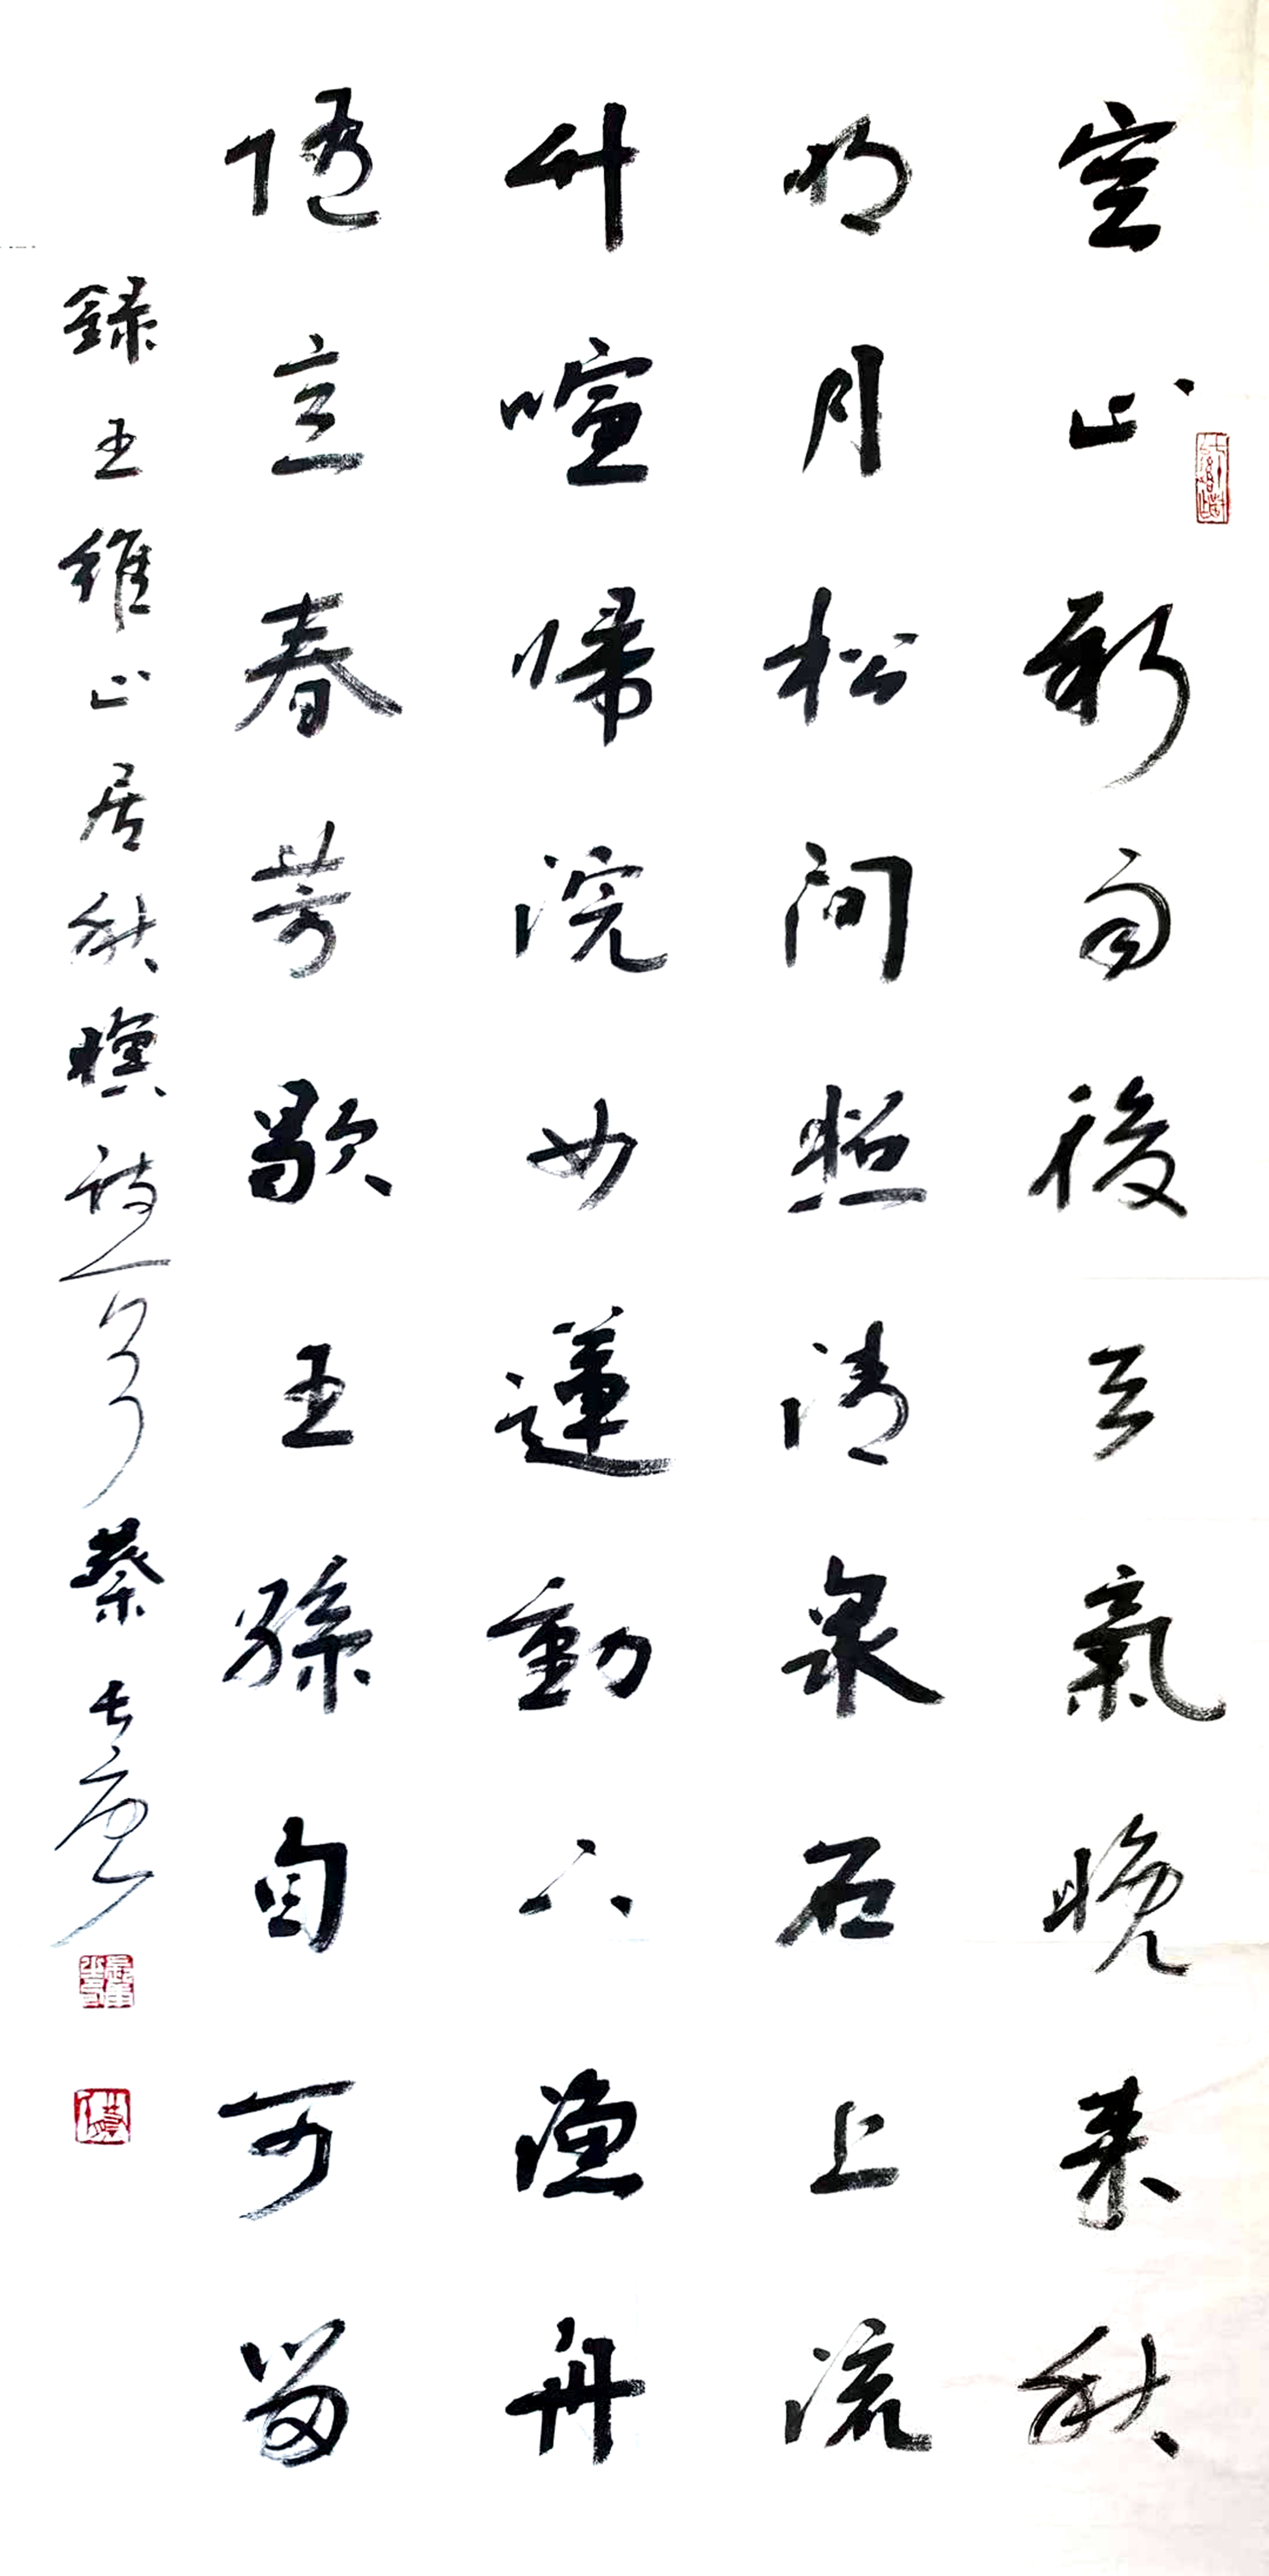 空山新雨後天氣晚来秋
明月松间照清泉石上流
竹喧帰浣女蓮動下漁舟
随意春芳歇王孫自可留
録王維山居秋暝詩一首蔡